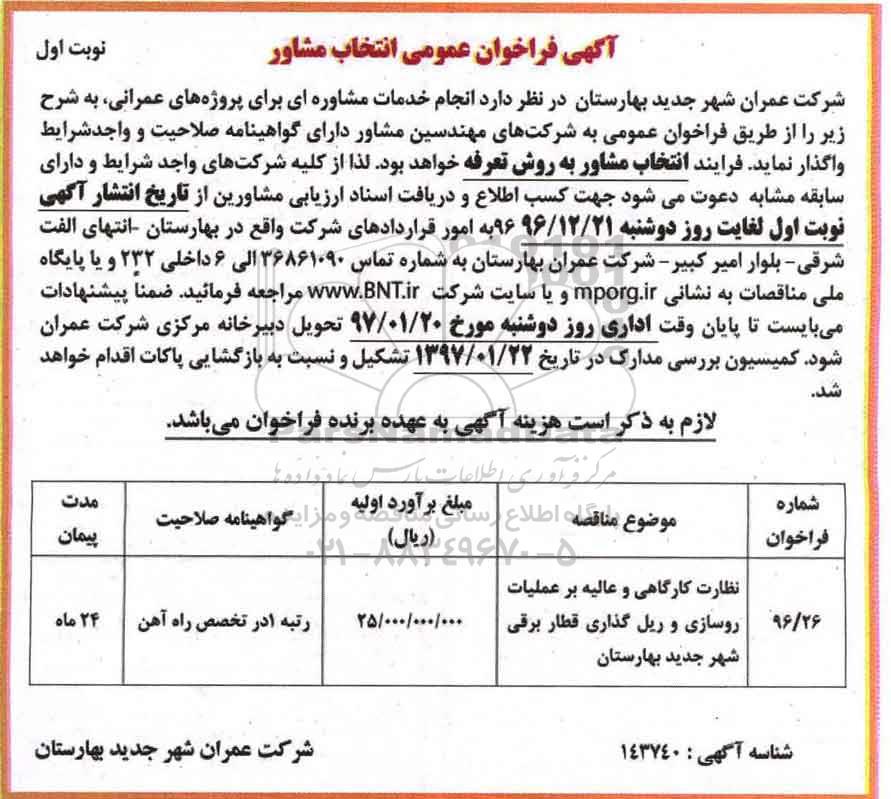 آگهی فراخوان عمومی انتخاب مشاور
نوبت اول
شرکت عمران شهر جدید بهارستان در نظر دارد انجام خدمات مشاوره ای برای پروژه‌های عمرانی، به شرح
زیر را از طریق فراخوان عمومی به شرکت‌های مهندسین مشاور دارای گواهینامه صلاحیت و واجدشرایط
واگذار نماید. فرایند انتخاب مشاور به روش تعرفه خواهد بود. لذا از کلیه شرکت‌های واجد شرایط و دارای
سابقه مشابه دعوت می شود جهت کسب اطلاع و دریافت اسناد ارزیابی مشاورین از تاریخ انتشار آگهی
نوبت اول لغایت روز دوشنبه ۹۶/۱۲/۲۱ ۹۶به امور قراردادهای شرکت واقع در بهارستان -انتهای الفت
شرقی- بلوار امیر کبیر- شرکت عمران بهارستان به شماره تماس ۳۶۸۶۱۰۹۰ الی ۶ داخلی ۲۳۲ و یا پایگاه
ملی مناقصات به نشانی mporg.ir و یا سایت شرکت www.BNT.ir مراجعه فرمائید. ضمناً پیشنهادات
می‌بایست تا پایان وقت اداری روز دوشنبه مورخ ۹۷/۰۱/۲۰ تحویل دبیرخانه مرکزی شرکت عمران
شود. کمیسیون بررسی مدارک در تاریخ ۱۳۹۷/۰۱/۲۲ تشکیل و نسبت به بازگشایی پاکات اقدام خواهد
شد.
لازم به ذکر است هزینه آگهی به عهده برنده فراخوان می‌باشد.
ParsNamadData
مرکز فرآوری اطلاعات پارس نماد داده‌ها
پایگاه اطلاع رسانی مناقصه و مزایده
۰۲۱-۸۸۳۴۹۶۷۰-۵
شماره فراخوان
موضوع مناقصه
مبلغ برآورد اولیه (ریال)
گواهینامه صلاحیت
مدت پیمان
۹۶/۲۶
نظارت کارگاهی و عالیه بر عملیات
روسازی و ریل گذاری قطار برقی
شهر جدید بهارستان
۲۵/۰۰۰/۰۰۰/۰۰۰
رتبه ۱در تخصص راه آهن
۲۴ ماه
شناسه آگهی : ۱۴۳۷۴۰
شرکت عمران شهر جدید بهارستان